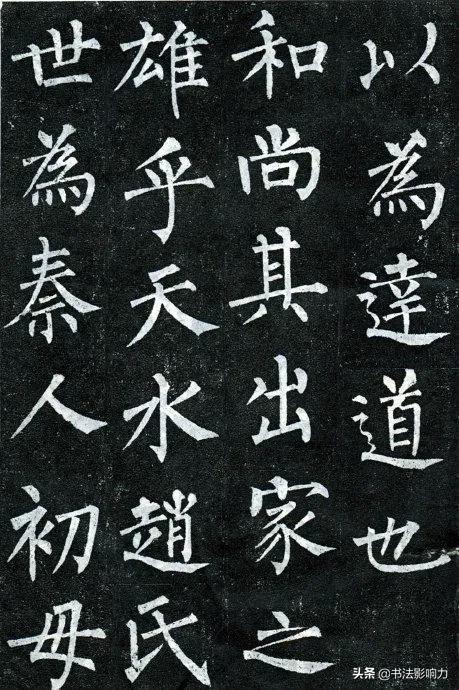 以為達道也
和尚其出家之
雄乎天水趙氏
世為秦人初母
头条 @书法影响力